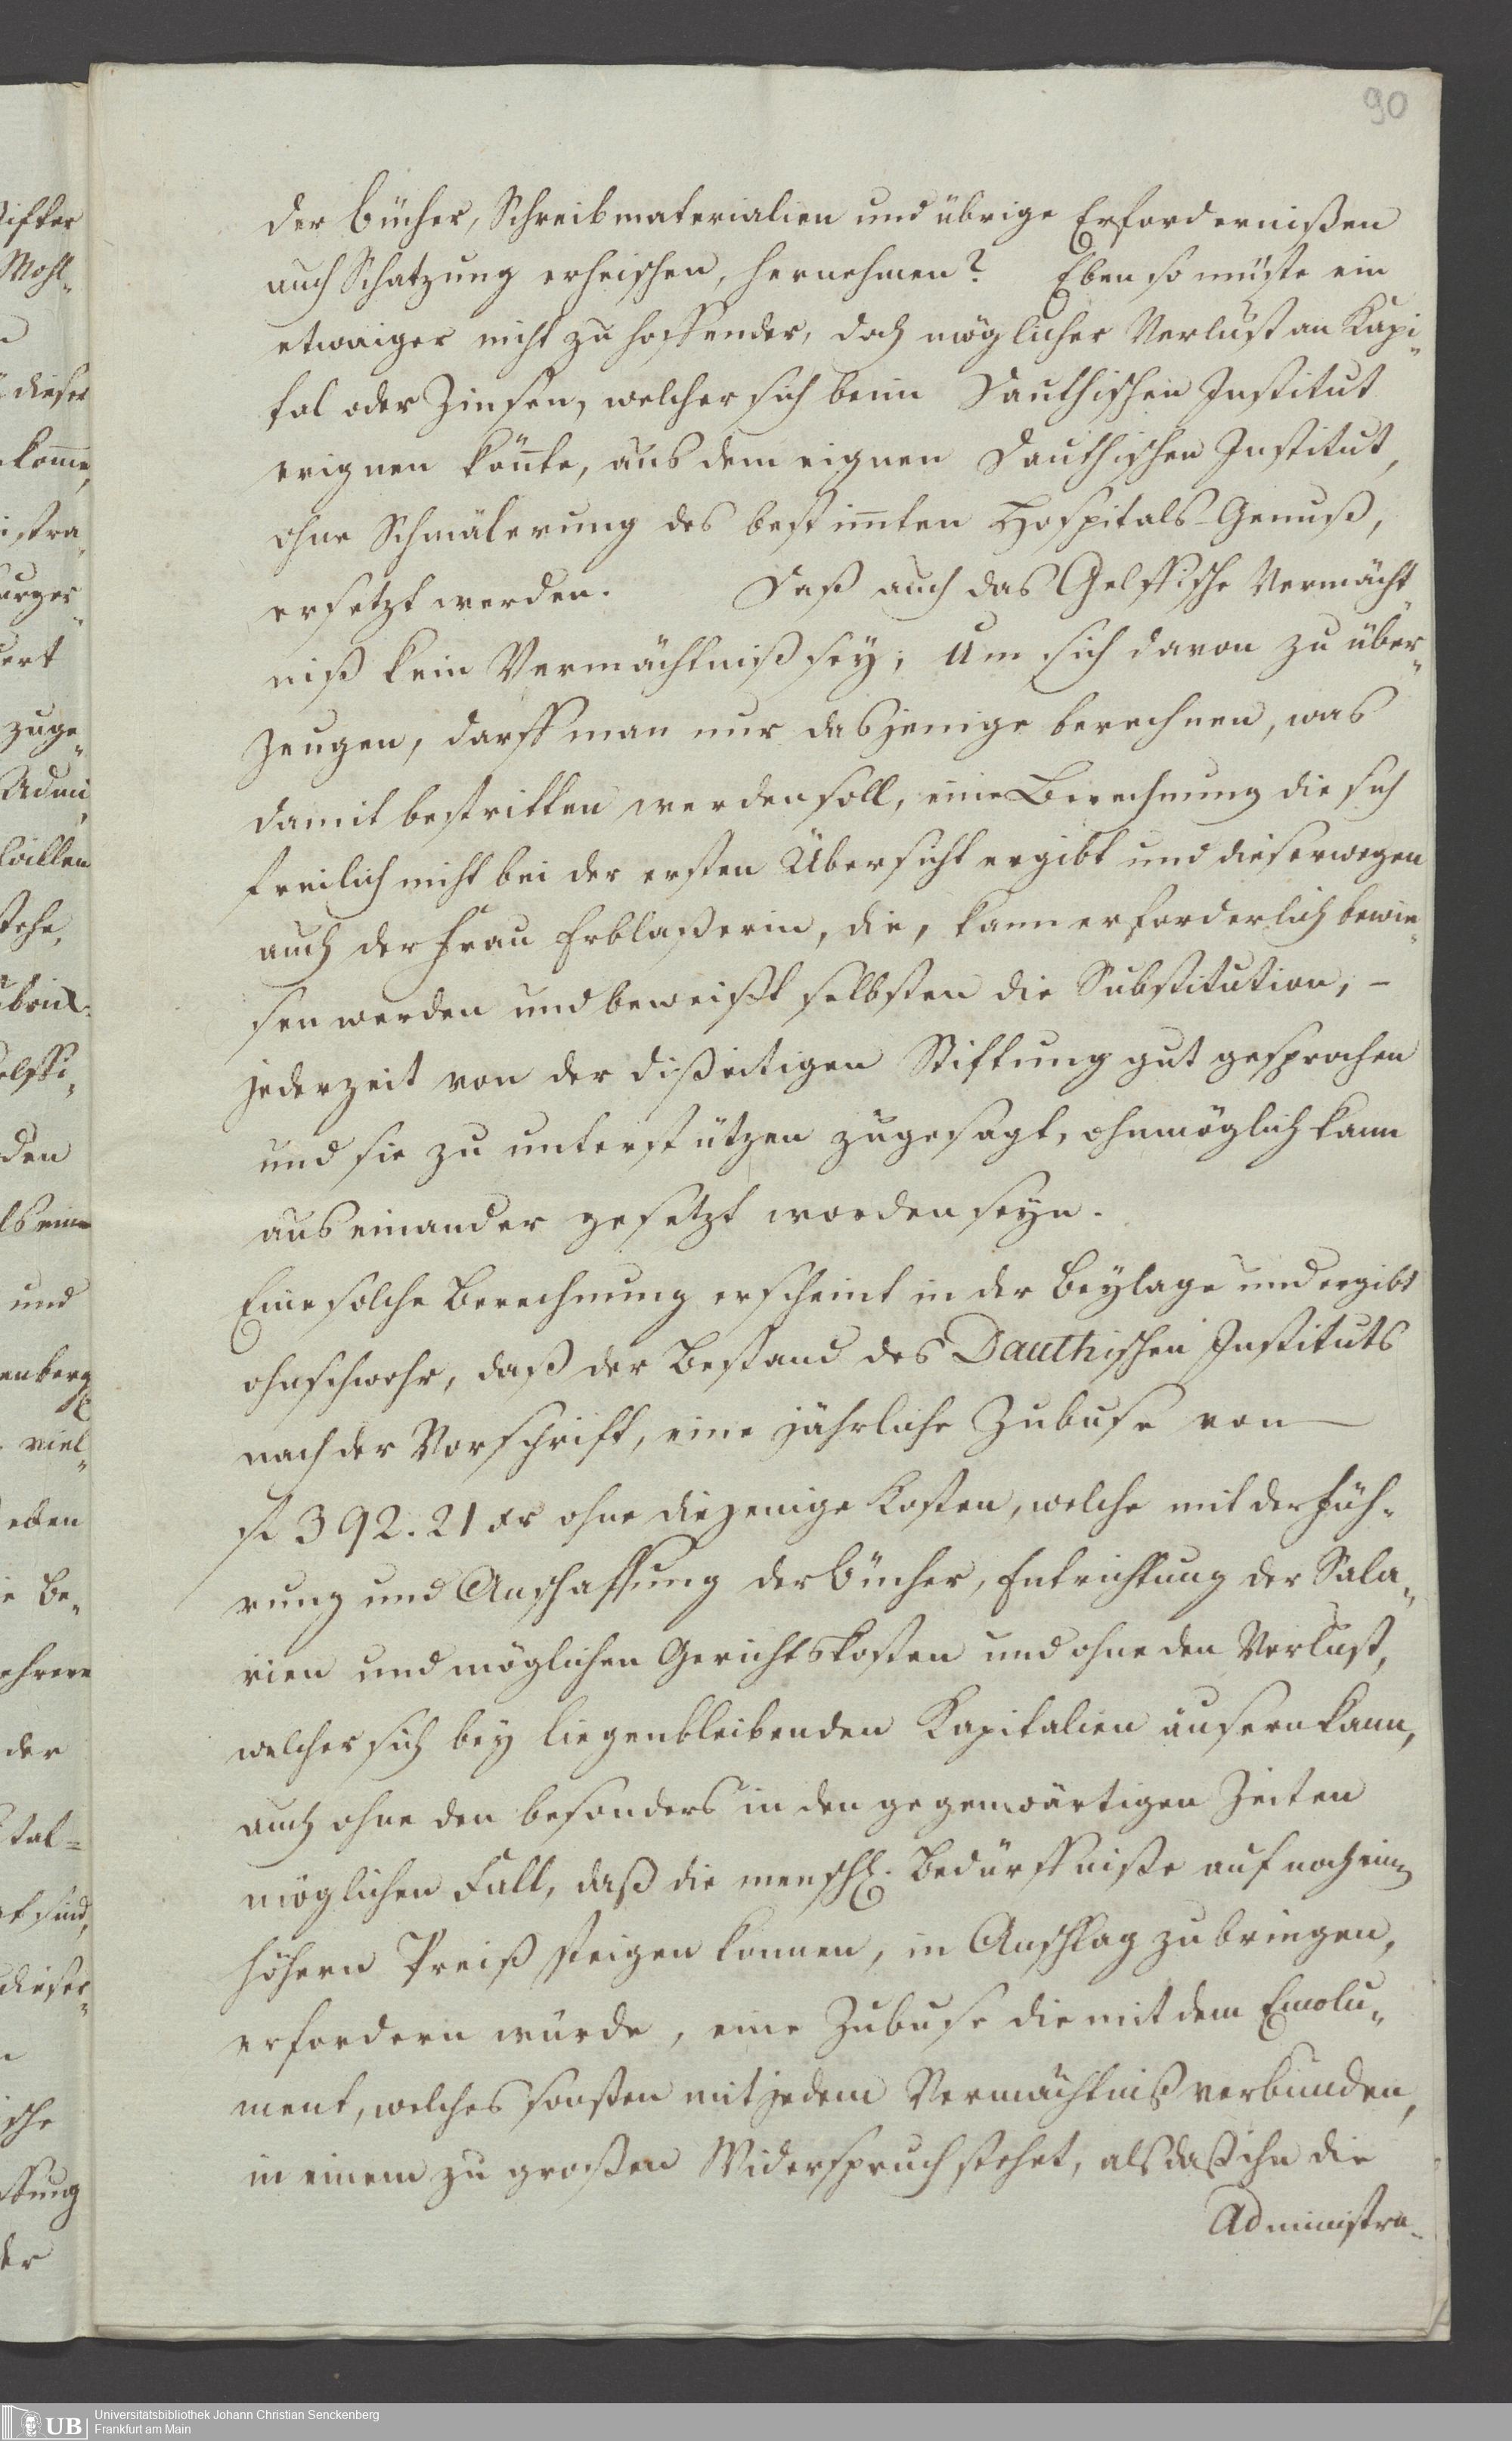 90
der Bücher, Schreibmaterialien und übrige Erfordernißen
auch Schatzung erheischen, hernehmen? Eben so müste ein
etwaiger nicht zu hoffender, doch möglicher Verlust an Kapi„
tal oder Zinsen, welcher sich beim Dauthischen Institut
erignen könnte, aus dem eignen Dauthischen Institut,
ohne Schmälerung des bestimten Hospitals-Genuß,
ersetzt werden. Daß auch das Gelffische Vermächt„
niß kein Vermächtniß sey; Um sich davon zu über„
zeugen, darff man nur dasjenige berechnen, was
damit bestritten werden soll, eine Berechnung die sich
freilich nicht bei der ersten Übersicht ergibt und dieserwegen
auch der Frau Erblaßerin, die, kann erforderlich bewie„
sen werden und beweißt selbsten die Substitution, –
jederzeit von der dißeitigen Stiftung gut gesprochen
und sie zu unterstützen zugesagt, ohnmöglich kann
auseinander gesetzt worden seyn.
Eine solche Berechnung erscheint in der Beylage und ergibt
ohnschwehr, daß der Bestand des Dauthischen Instituts
nach der Vorschrift, eine jährliche Zubuse von —
fl 392. 21 xr ohne diejenige Kosten, welche mit der Füh„
rung und Anschaffung der Bücher, Entrichtung der Sala„
rien und möglichen Gerichtskosten und ohne den Verlust,
welcher sich bey liegenbleibenden Kapitalien äusern kann,
auch ohne den besonders in den gegenwärtigen Zeiten
möglichen Fall, daß die menschl. Bedürffniße auf noch einen
höhern Preiß steigen können, in Anschlag zu bringen,
erfordern würde, eine Zubuse die mit dem Emolu„
ment, welches sonsten mit jedem Vermächtniß verbunden,
in einem zu großen Widerspruch stehet, als daß ihn die
Administra-
Universitätsbibliothek Johann Christian Senckenberg
Frankfurt am Main
UB